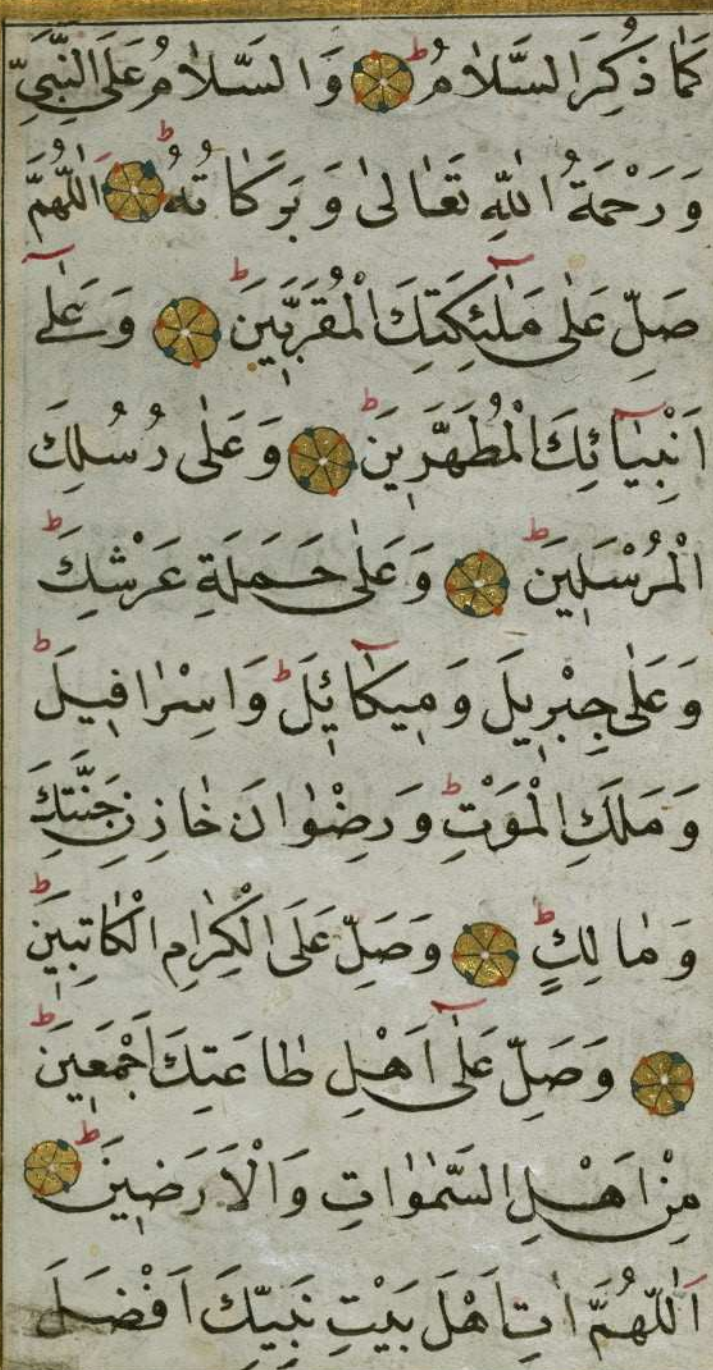 كَمَا ذُكِرَ السَّلَامُ ط وَالسَّلَامُ عَلَى النَّبِيِّ
وَرَحْمَةُ اللهِ تَعَالىٰ وَبَرَكَاتُهُ ط اَللّٰهُمَّ
صَلِّ عَلٰى مَلٰٓئِكَتِكَ الْمُقَرَّبِينَ ط وَعَلٰٓى
اَنْبِيَآئِكَ الْمُطَهَّرِينَ ط وَعَلٰى رُسُلِكَ
الْمُرْسَلِينَ ط وَعَلٰى حَمَلَةِ عَرْشِكَ ط
وَعَلٰى جِبْرِيلَ وَمِيكَآئِلَ ط وَاِسْرَافِيلَ ط
وَمَلَكِ الْمَوْتِ ط وَرِضْوَانَ خَازِنِ جَنَّتِكَ
وَمَالِكٍ ط وَصَلِّ عَلَى الْكِرَامِ الْكَاتِبِينَ ط
وَصَلِّ عَلٰٓى اَهْلِ طَاعَتِكَ اَجْمَعِينَ ط
مِنْ اَهْلِ السَّمٰوَاتِ وَالْاَرَضِينَ ط
اَللّٰهُمَّ اٰتِ اَهْلَ بَيْتِ نَبِيِّكَ اَفْضَلَ